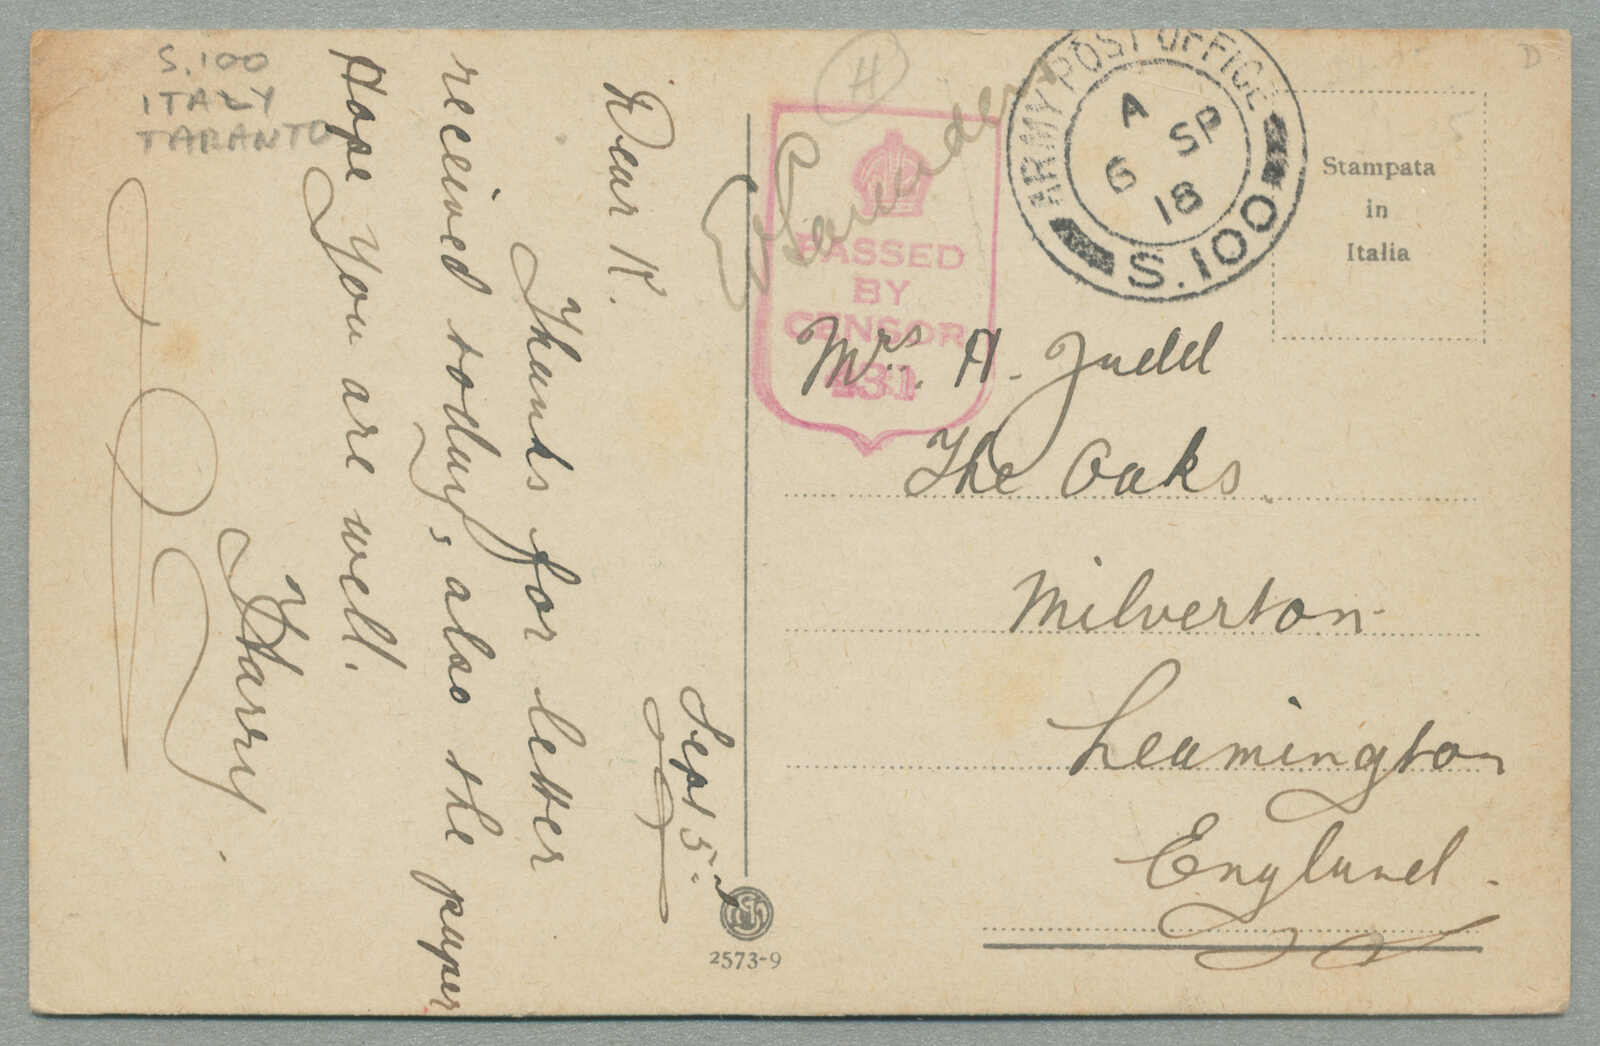 S.100
ITALY
TARANTO
H
D
Sept 5.
Dear K.
Thanks for letter
received today, also the paper
Hope you are well.
Harry.
PASSED
BY
CENSOR
ARMY POST OFFICE
A
6 SP
18
S.100
Stampata
in
Italia
Mrs. H. Judd
The Oaks.
Milverton
Leamington
England.
2573-9